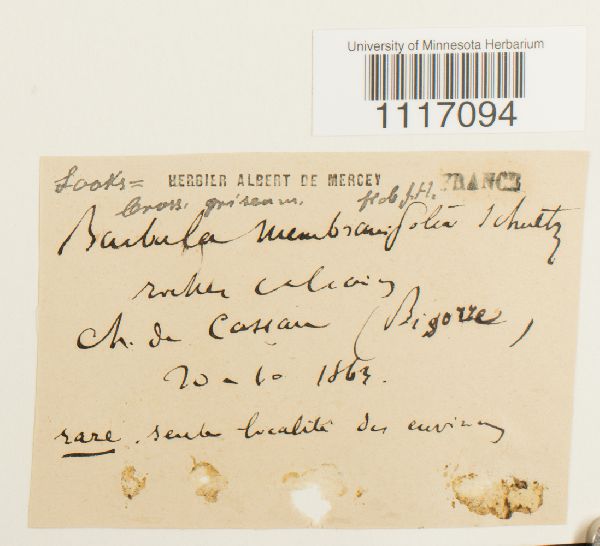 University of Minnesota Herbarium
1117094
Looks = HERBIER ALBERT DE MERCEY FRANCE
Cross. griseum.
Barbula membranifolia Schultz
rocher calcaire
Ch. de (Bigorre)
20 - 10 1863.
rare. seule localité des environs